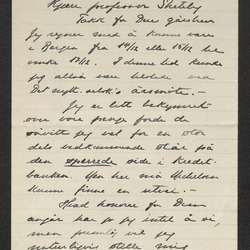 Kjære professor Shetelig
Takk for Due
Jeg regner med å kunne være
i Bergen fra 14/12 eller 15/12 til
17/12. I denne tid kunde
jeg altså være tilstede ved
Det nyt. selsk's årsmøte. –
Jeg er litt bekymret
over våre penge fordi de
såvitt jeg vet for en stor
dels vedkommende står på
den sperrede side i Kredit-
banken. Men her må
kunne finne en utvei. –
Hvad honorar for Dem
angår har jo jeg intet å si,
men jeg
naturligvis stille mig